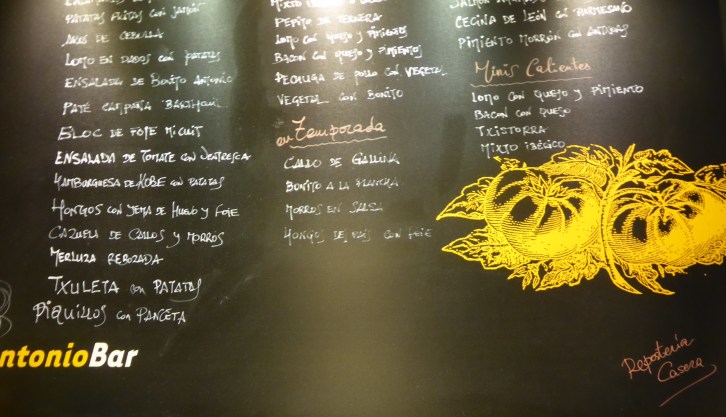 PATATAS FRITAS CON JAMÓN
AROS DE CEBOLLA
LOMO EN DADOS CON PATATAS
ENSALADA DE BONITO ANTONIO
PATÉ CAMPAÑA
BLOC DE FOIE MI CUIT
ENSALADA DE TOMATE CON VENTRESCA
HAMBURGUESA DE KOBE CON PATATAS
HONGOS CON YEMA DE HUEVO Y FOIE
CAZUELA DE CALLOS Y MORROS
MERLUZA REBOZADA
TXULETA CON PATATAS
PIQUILLOS CON PANCETA
ntonioBar
MIXTO
PEPITO DE TERNERA
LOMO CON QUESO Y PIMIENTOS
BACON CON QUESO Y PIMIENTOS
PECHUGA DE POLLO CON VEGETAL
VEGETAL CON BONITO
en Temporada
CALDO DE GALLINA
BONITO A LA PLANCHA
MORROS EN SALSA
HONGOS CON FOIE
SALMÓN
CECINA DE LEÓN CON PARMESANO
PIMIENTO MORRÓN CON
Minis Calientes
LOMO CON QUEJO Y PIMIENTO
BACON CON QUEJO
TXISTORRA
MIXTO IBÉRICO
Repostería
Casera